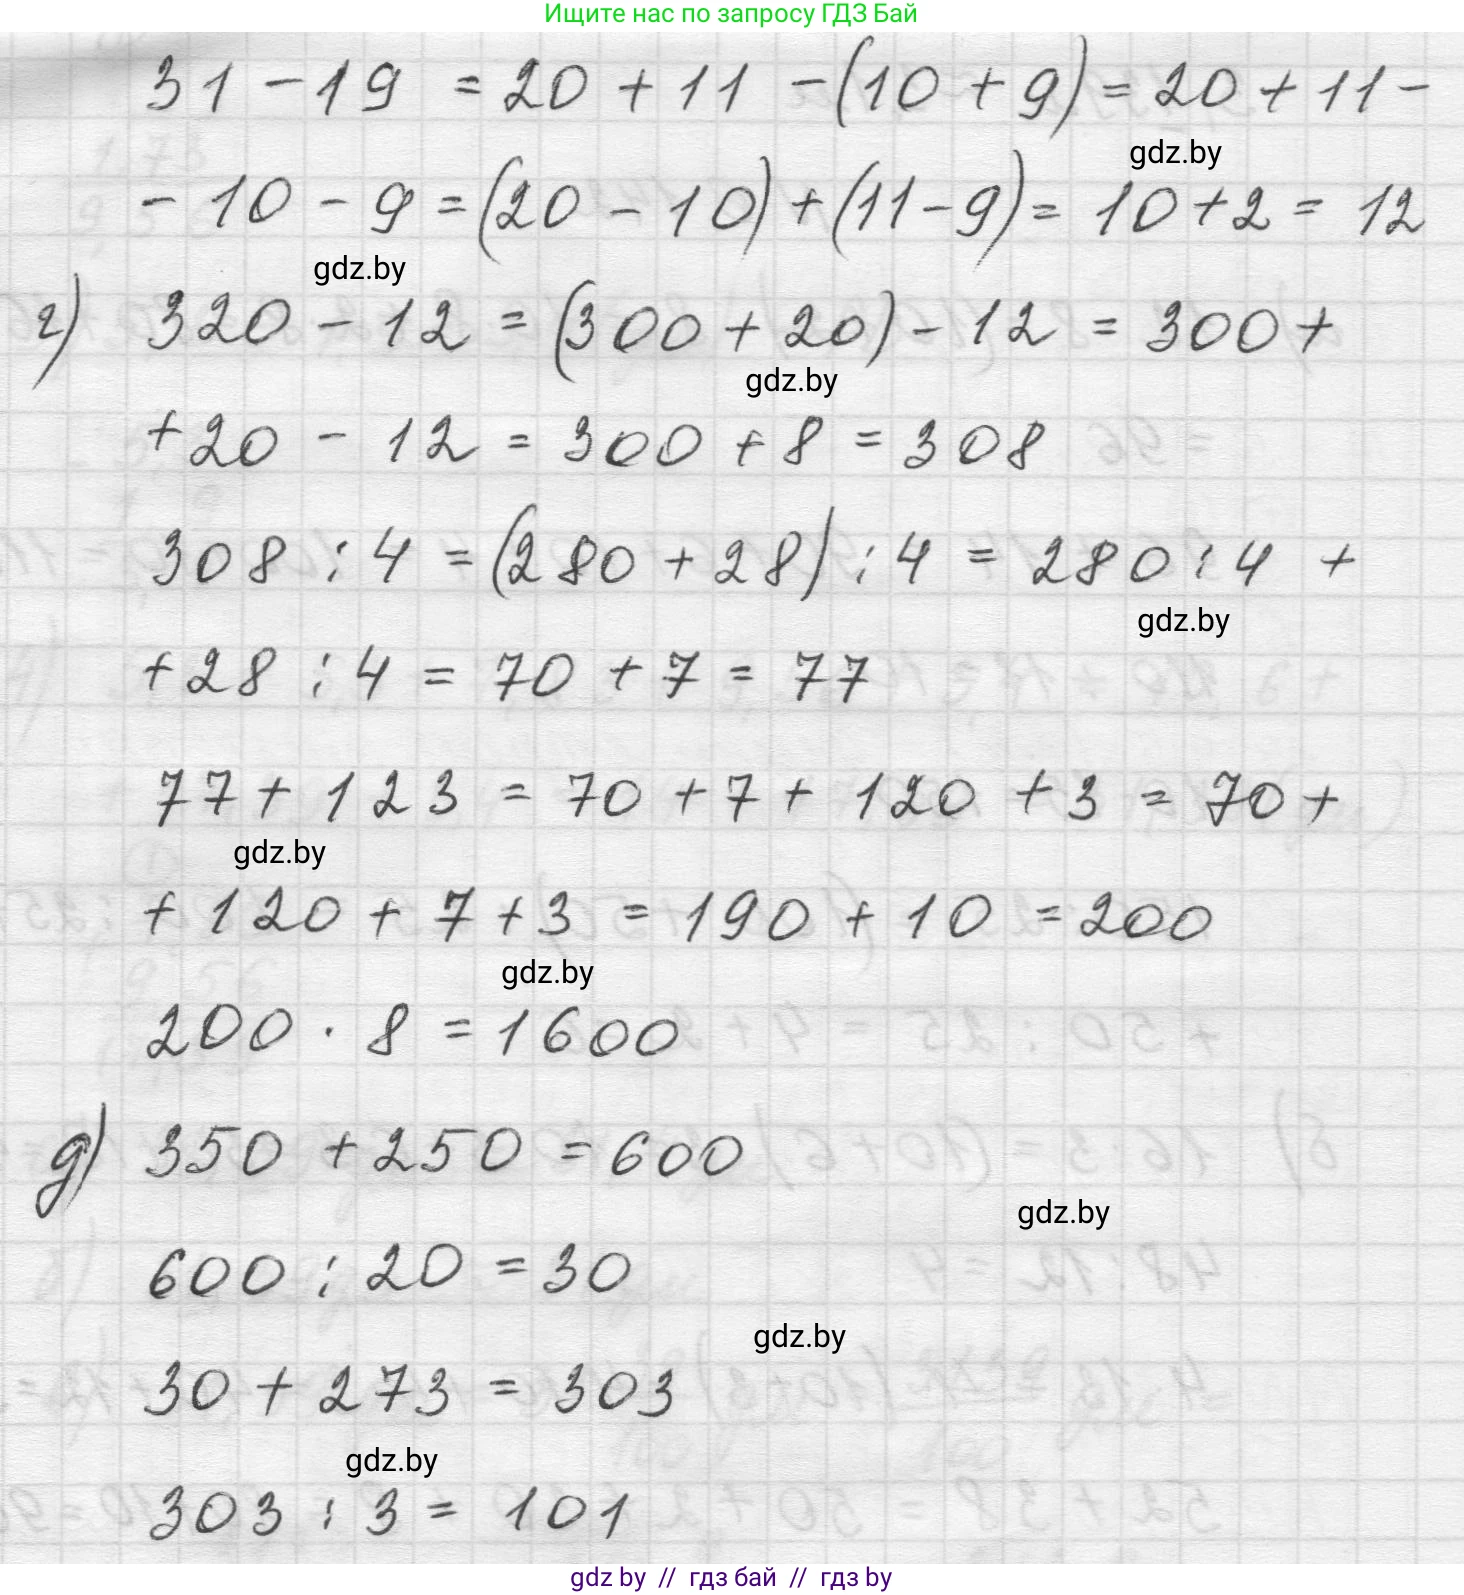 Ищите нас по запросу ГДЗ Бай
31 - 19 = 20 + 11 - (10 + 9) = 20 + 11 -
gdz.by
- 10 - 9 = (20 - 10) + (11 - 9) = 10 + 2 = 12
gdz.by
г) 320 - 12 = (300 + 20) - 12 = 300 +
gdz.by
+ 20 - 12 = 300 + 8 = 308
308 : 4 = (280 + 28) : 4 = 280 : 4 +
gdz.by
+ 28 : 4 = 70 + 7 = 77
77 + 123 = 70 + 7 + 120 + 3 = 70 +
gdz.by
+ 120 + 7 + 3 = 190 + 10 = 200
gdz.by
200 · 8 = 1600
д) 350 + 250 = 600
gdz.by
600 : 20 = 30
gdz.by
30 + 273 = 303
gdz.by
303 : 3 = 101
gdz by // гдз бай // гдз by